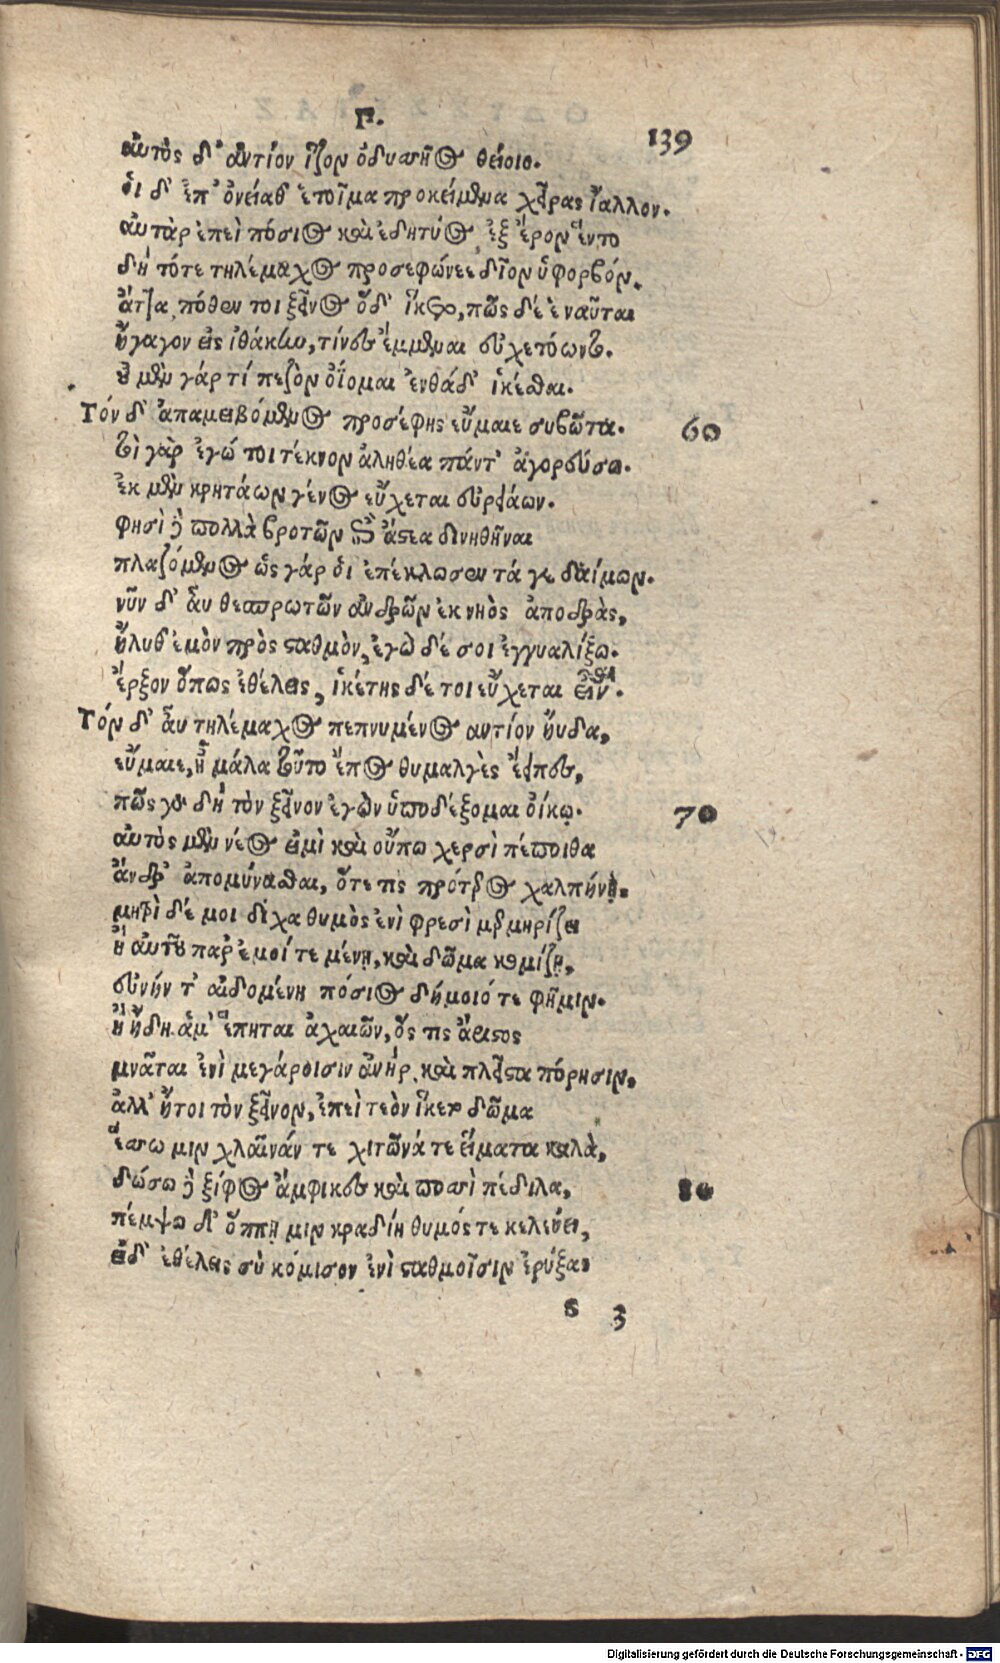 Π. 139
αὐτὸς δ' ἀντίον ἷζον ὀδυσσῆος θείοιο.
ὁι δ' ἐπ' ὀνείαθ' ἑτοῖμα προκείμενα χεῖρας ἴαλλον.
αὐτὰρ ἐπεὶ πόσιος καὶ ἐδητύος ἐξ ἔρον ἕντο
δὴ τότε τηλέμαχος προσεφώνεε δῖον ὑφορβόν.
ἄττα, πόθεν τοι ξεῖνος ὅδ' ἵκετο, πῶς δέ ἑ ναῦται
ἤγαγον εἰς ἰθάκην, τίνες ἔμμεναι εὐχετόωντο.
οὐ μὲν γάρ τί πεζὸν ὀΐομαι ἐνθάδ' ἱκέσθαι.
Τόν δ' ἀπαμειβόμενος προσέφης εὔμαιε συβῶτα. 60
τοὶ γὰρ ἐγώ τοι τέκνον ἀληθέα πάντ' ἀγορεύσω.
ἐκ μὲν κρητάων γένος εὔχεται εὐρειάων.
φησὶ δὲ πολλὰ βροτῶν ἐπὶ ἄστεα δινηθῆναι
πλαζόμενος ὣς γάρ ὁι ἐπέκλωσεν τά γε δαίμων.
νῦν δ' ἂυ θεσπρωτῶν ἀνδρῶν ἐκ νηὸς ἀποδρὰς,
ἤλυθ' ἐμὸν πρὸς σταθμὸν, ἐγὼ δέ σοι ἐγγυαλίξω.
ἔρξον ὅπως ἐθέλεις, ἱκέτης δέ τοι εὔχεται εἶναι.
Τόν δ' ἂυ τηλέμαχος πεπνυμένος αντίον ἤυδα,
εὔμαιε, ἦ μάλα τοῦτο ἔπος θυμαλγὲς ἔειπες,
πῶς γὰρ δὴ τὸν ξεῖνον ἐγὼν ὑποδέξομαι οἴκῳ. 70
αὐτὸς μὲν νέος εἰμὶ καὶ οὔπω χερσὶ πέποιθα
ἄνδρ' ἀπομύνασθαι, ὅτε τις πρότερος χαλπήνῃ.
μητρὶ δέ μοι δίχα θυμὸς ἐνὶ φρεσὶ μερμηρίζει
ἢ αὐτοῦ παρ' ἐμοί τε μένῃ, καὶ δῶμα κομίζῃ,
εὐνήν τ' αἰδομένη πόσιος δήμοιό τε φῆμιν.
ἢ ἤδη ἁμ' ἕπηται ἀχαιῶν, ὅς τις ἄριστος
μνᾶται ἐνὶ μεγάροισιν ἀνήρ, καὶ πλεῖστα πόρησιν,
ἀλλ' ἤτοι τὸν ξεῖνον, ἐπεὶ τεὸν ἵκετο δῶμα
ἕσσω μιν χλαῖνάν τε χιτῶνά τε εἵματα καλὰ,
δώσω δὲ ξίφος ἄμφικες καὶ ποσσὶ πέδιλα, 80
πέμψω δ' ὅππῃ μιν κραδίη θυμός τε κελεύει,
εἰ δ' ἐθέλεις σὺ κόμισον ἐνὶ σταθμοῖσιν ἐρύξας
s 3
Digitalisierung gefördert durch die Deutsche Forschungsgemeinschaft - DFG